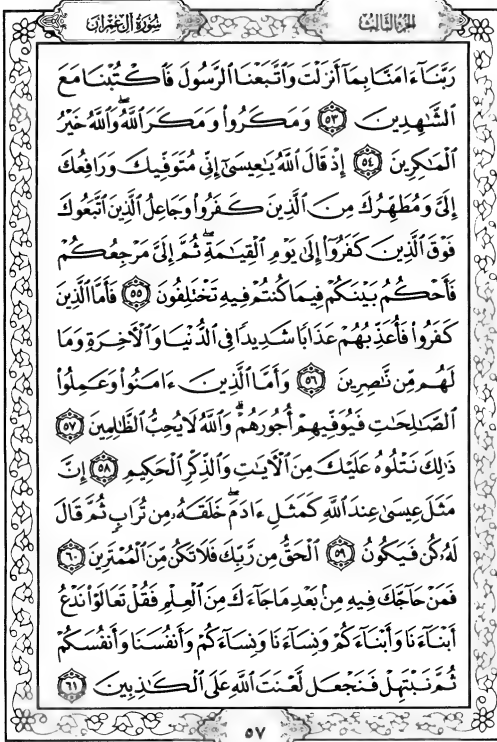 سُورَةُ آلِ عِمْرَان
الجُزْءُ الثَّالِثُ
رَبَّنَآ ءَامَنَّا بِمَآ أَنزَلْتَ وَٱتَّبَعْنَا ٱلرَّسُولَ فَٱكْتُبْنَا مَعَ
ٱلشَّٰهِدِينَ ٥٣ وَمَكَرُواْ وَمَكَرَ ٱللَّهُۖ وَٱللَّهُ خَيْرُ
ٱلْمَٰكِرِينَ ٥٤ إِذْ قَالَ ٱللَّهُ يَٰعِيسَىٰٓ إِنِّي مُتَوَفِّيكَ وَرَافِعُكَ
إِلَىَّ وَمُطَهِّرُكَ مِنَ ٱلَّذِينَ كَفَرُواْ وَجَاعِلُ ٱلَّذِينَ ٱتَّبَعُوكَ
فَوْقَ ٱلَّذِينَ كَفَرُوٓاْ إِلَىٰ يَوْمِ ٱلْقِيَٰمَةِۖ ثُمَّ إِلَىَّ مَرْجِعُكُمْ
فَأَحْكُمُ بَيْنَكُمْ فِيمَا كُنتُمْ فِيهِ تَخْتَلِفُونَ ٥٥ فَأَمَّا ٱلَّذِينَ
كَفَرُواْ فَأُعَذِّبُهُمْ عَذَابًا شَدِيدًا فِى ٱلدُّنْيَا وَٱلْأَخِرَةِ وَمَا
لَهُم مِّن نَّٰصِرِينَ ٥٦ وَأَمَّا ٱلَّذِينَ ءَامَنُواْ وَعَمِلُواْ
ٱلصَّٰلِحَٰتِ فَيُوَفِّيهِمْ أُجُورَهُمْۗ وَٱللَّهُ لَا يُحِبُّ ٱلظَّٰلِمِينَ ٥٧
ذَٰلِكَ نَتْلُوهُ عَلَيْكَ مِنَ ٱلْأَيَٰتِ وَٱلذِّكْرِ ٱلْحَكِيمِ ٥٨ إِنَّ
مَثَلَ عِيسَىٰ عِندَ ٱللَّهِ كَمَثَلِ ءَادَمَۖ خَلَقَهُۥ مِن تُرَابٍ ثُمَّ قَالَ
لَهُۥ كُن فَيَكُونُ ٥٩ ٱلْحَقُّ مِن رَّبِّكَ فَلَا تَكُن مِّنَ ٱلْمُمْتَرِينَ ٦٠
فَمَنْ حَآجَّكَ فِيهِ مِنۢ بَعْدِ مَا جَآءَكَ مِنَ ٱلْعِلْمِ فَقُلْ تَعَالَوْاْ نَدْعُ
أَبْنَآءَنَا وَأَبْنَآءَكُمْ وَنِسَآءَنَا وَنِسَآءَكُمْ وَأَنفُسَنَا وَأَنفُسَكُمْ
ثُمَّ نَبْتَهِلْ فَنَجْعَل لَّعْنَتَ ٱللَّهِ عَلَى ٱلْكَٰذِبِينَ ٦١
٥٧